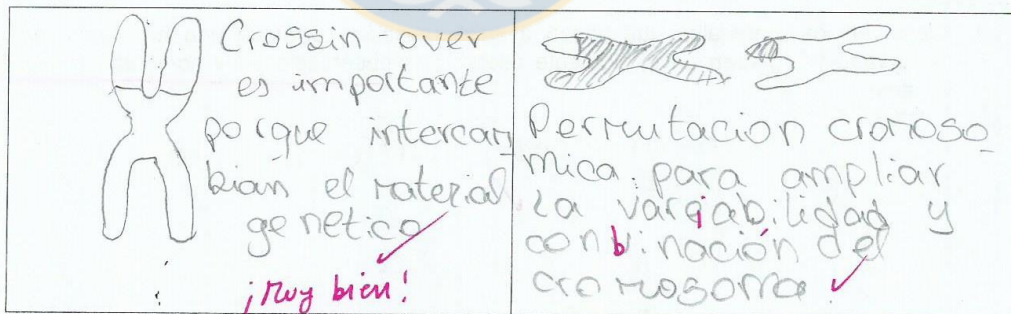 Crossin-over
es importante
porque intercam
bian el material
genetico
¡Muy bien!
Permutacion cromoso
mica para ampliar
La variabilidad y
conbinación del
cromosoma.